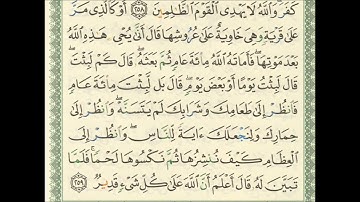 كَفَرَ وَاللَّهُ لَا يَهْدِى الْقَوْمَ الظَّٰلِمِينَ ٢٥٨ أَوْ كَالَّذِى مَرَّ
عَلَىٰ قَرْيَةٍ وَهِىَ خَاوِيَةٌ عَلَىٰ عُرُوشِهَا قَالَ أَنَّىٰ يُحْىِۦ هَٰذِهِ اللَّهُ
بَعْدَ مَوْتِهَا ۖ فَأَمَاتَهُ اللَّهُ مِائَةَ عَامٍ ثُمَّ بَعَثَهُۥ ۖ قَالَ كَمْ لَبِثْتَ ۖ
قَالَ لَبِثْتُ يَوْمًا أَوْ بَعْضَ يَوْمٍ ۖ قَالَ بَل لَّبِثْتَ مِائَةَ عَامٍ
فَانظُرْ إِلَىٰ طَعَامِكَ وَشَرَابِكَ لَمْ يَتَسَنَّهْ ۖ وَانظُرْ إِلَىٰ
حِمَارِكَ وَلِنَجْعَلَكَ ءَايَةً لِّلنَّاسِ ۖ وَانظُرْ إِلَى
الْعِظَامِ كَيْفَ نُنشِزُهَا ثُمَّ نَكْسُوهَا لَحْمًا ۚ فَلَمَّا
تَبَيَّنَ لَهُۥ قَالَ أَعْلَمُ أَنَّ اللَّهَ عَلَىٰ كُلِّ شَىْءٍ قَدِيرٌ ٢٥٩